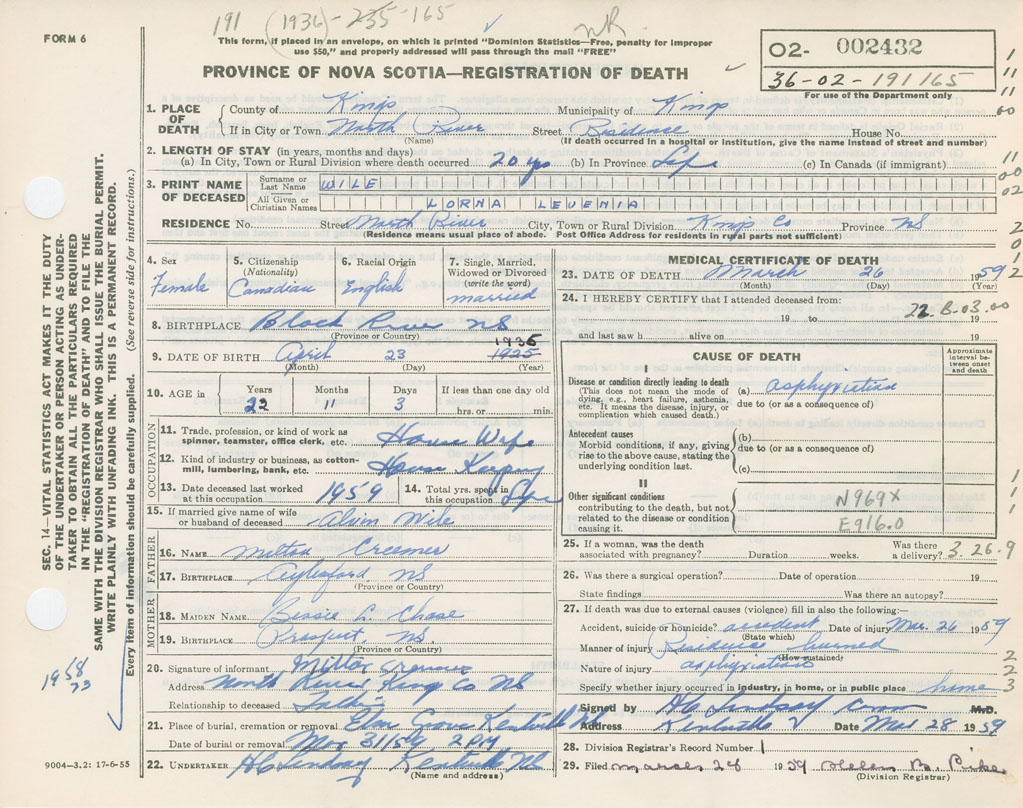 191 (1936)-235-165
NR
FORM 6
This form, if placed in an envelope, on which is printed "Dominion Statistics—Free, penalty for improper
use $50," and properly addressed will pass through the mail "FREE"
02- 002432
36-02-191165
For use of the Department only
PROVINCE OF NOVA SCOTIA—REGISTRATION OF DEATH
1. PLACE OF DEATH County of Kings Municipality of Kings
If in City or Town North River Street Residence House No.
(Name) (If death occurred in a hospital or institution, give the name instead of street and number)
2. LENGTH OF STAY (in years, months and days)
(a) In City, Town or Rural Division where death occurred 20 yrs (b) In Province Life (c) In Canada (if immigrant)
3. PRINT NAME OF DECEASED Surname or Last Name WILE
All Given or Christian Names LORNA LEVENIA
RESIDENCE No. Street North River City, Town or Rural Division Kings Co Province NS
(Residence means usual place of abode. Post Office Address for residents in rural parts not sufficient)
4. Sex Female
5. Citizenship (Nationality) Canadian
6. Racial Origin English
7. Single, Married, Widowed or Divorced (write the word) married
8. BIRTHPLACE Black River NS
(Province or Country)
1936
9. DATE OF BIRTH April 23 1925
(Month) (Day) (Year)
10. AGE in Years 22 Months 11 Days 3 If less than one day old hrs. or min.
OCCUPATION
11. Trade, profession, or kind of work as spinner, teamster, office clerk, etc. House Wife
12. Kind of industry or business, as cotton-mill, lumbering, bank, etc. House Keeping
13. Date deceased last worked at this occupation 1959 14. Total yrs. spent in this occupation Life
15. If married give name of wife or husband of deceased Alvin Wile
FATHER
16. NAME Milton Creemer
17. BIRTHPLACE Aylesford NS
(Province or Country)
MOTHER
18. MAIDEN NAME Bessie L. Chase
19. BIRTHPLACE Prospect, NS.
(Province or Country)
20. Signature of informant Milton Creemer
Address North River Kings Co NS
Relationship to deceased Father
21. Place of burial, cremation or removal Elm Grove Kentville NS
Date of burial or removal Mar 31/59
22. UNDERTAKER H C Lindsay Kentville NS
(Name and address)
9004—3.2: 17-6-55
MEDICAL CERTIFICATE OF DEATH
23. DATE OF DEATH March 26 1959
(Month) (Day) (Year)
24. I HEREBY CERTIFY that I attended deceased from:
22.B.03.00
19 to 19
and last saw h alive on 19
CAUSE OF DEATH
Approximate interval between onset and death
I
Disease or condition directly leading to death
(This does not mean the mode of dying, e.g., heart failure, asthenia, etc. It means the disease, injury, or complication which caused death.)
(a) asphyxiation
due to (or as a consequence of)
Antecedent causes
Morbid conditions, if any, giving rise to the above cause, stating the underlying condition last.
(b)
due to (or as a consequence of)
(c)
II
Other significant conditions contributing to the death, but not related to the disease or condition causing it.
N969X
E916.0
25. If a woman, was the death associated with pregnancy? Duration weeks. Was there a delivery? 3.26.9
26. Was there a surgical operation? Date of operation 19
State findings Was there an autopsy?
27. If death was due to external causes (violence) fill in also the following:—
Accident, suicide or homicide? accident Date of injury Mar. 26 1959
(State which)
Manner of injury Residence burned
(How sustained)
Nature of injury asphyxiation
Specify whether injury occurred in industry, in home, or in public place home
Signed by H C Lindsay M.D.
Address Kentville Date Mar 28 1959
28. Division Registrar's Record Number 1
29. Filed March 28 1959 Helen B.
(Division Registrar)
SEC. 14—VITAL STATISTICS ACT MAKES IT THE DUTY
OF THE UNDERTAKER OR PERSON ACTING AS UNDER-
TAKER TO OBTAIN ALL THE PARTICULARS REQUIRED
IN THE "REGISTRATION OF DEATH" AND TO FILE THE
SAME WITH THE DIVISION REGISTRAR WHO SHALL ISSUE THE BURIAL PERMIT.
WRITE PLAINLY WITH UNFADING INK. THIS IS A PERMANENT RECORD.
Every item of information should be carefully supplied. (See reverse side for instructions.)